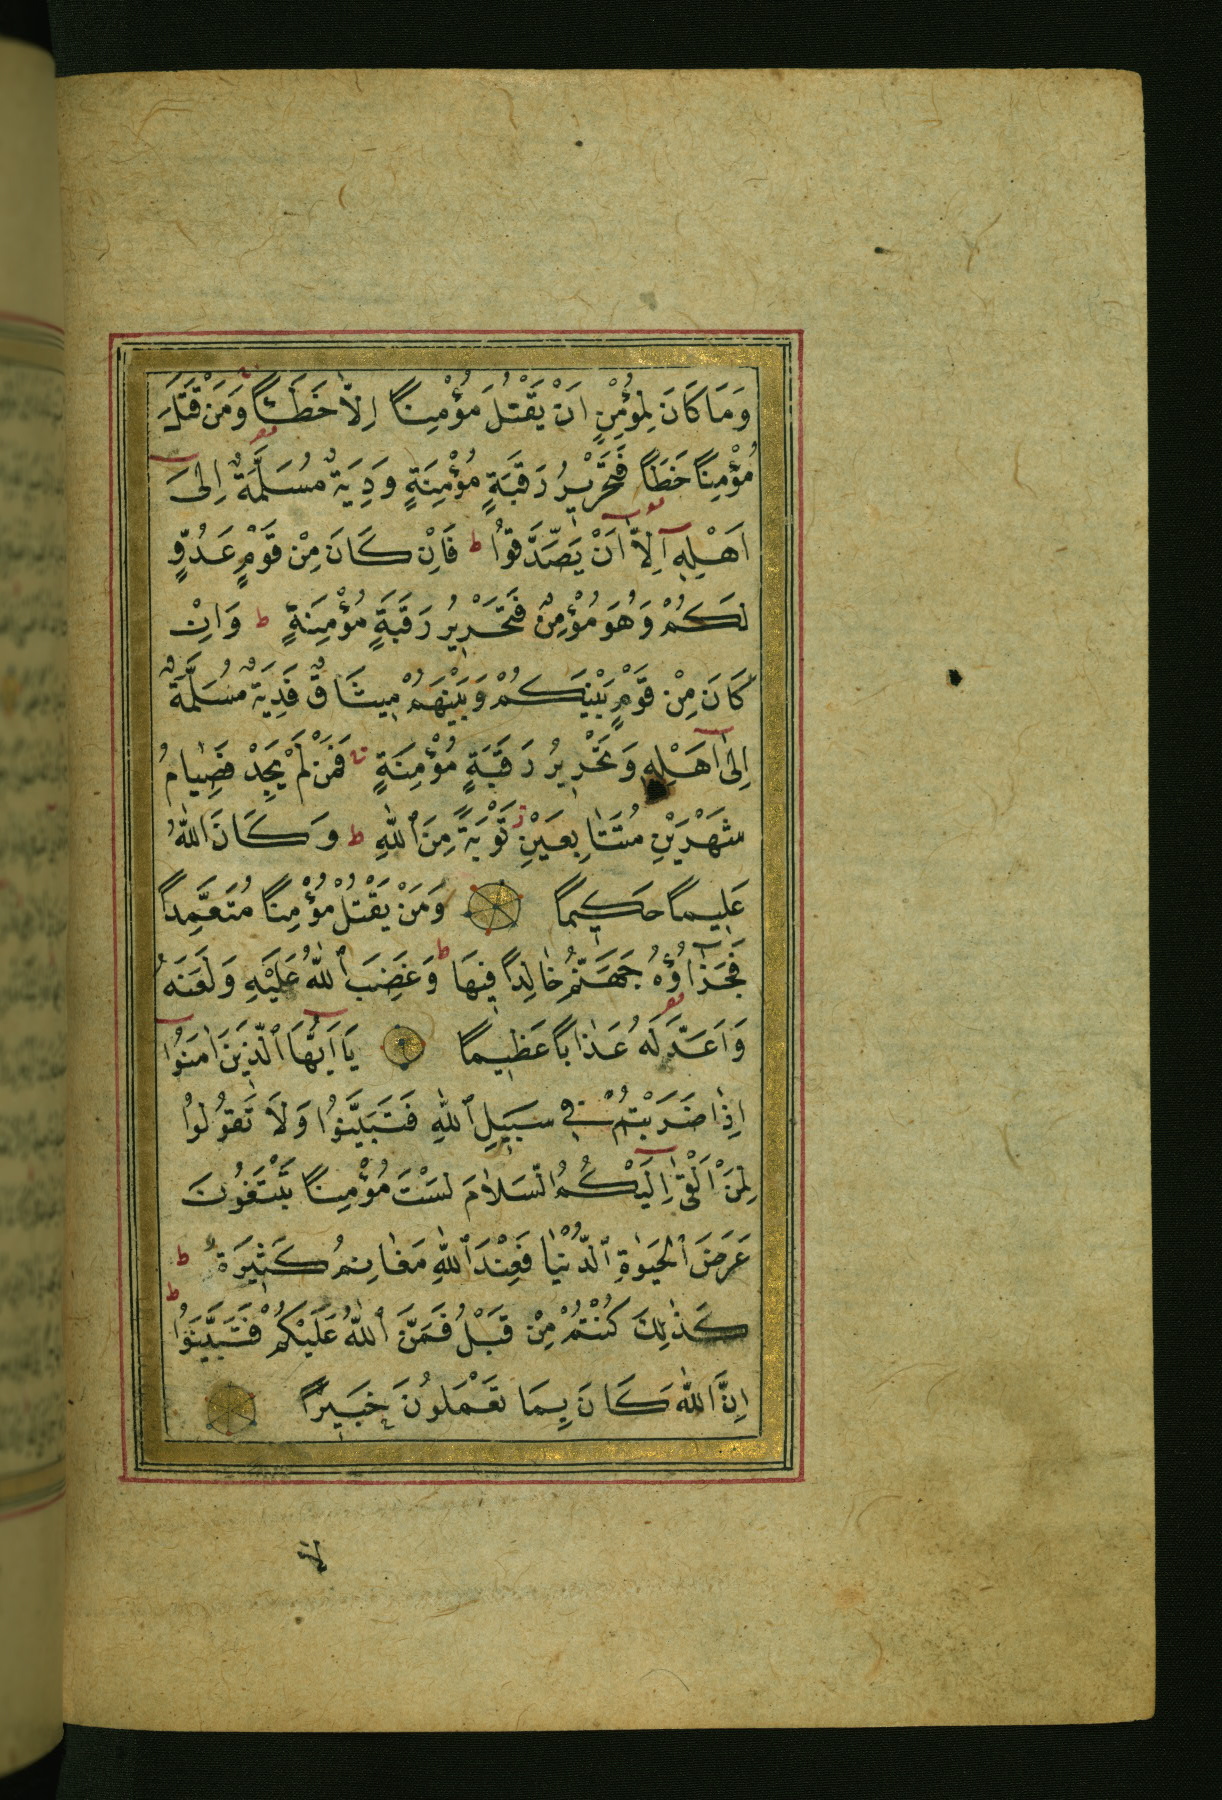 وَمَا كَانَ لِمُؤْمِنٍ اَنْ يَقْتُلَ مُؤْمِنًا اِلَّا خَطَـًٔا وَمَنْ قَتَلَ
مُؤْمِنًا خَطَـًٔا فَتَحْرٖيرُ رَقَبَةٍ مُؤْمِنَةٍ وَدِيَةٌ مُسَلَّمَةٌ اِلٰىٓ
اَهْلِهٖٓ اِلَّٓا اَنْ يَصَّدَّقُوا ط فَاِنْ كَانَ مِنْ قَوْمٍ عَدُوٍّ
لَكُمْ وَهُوَ مُؤْمِنٌ فَتَحْرٖيرُ رَقَبَةٍ مُؤْمِنَةٍ ط وَاِنْ
كَانَ مِنْ قَوْمٍ بَيْنَكُمْ وَبَيْنَهُمْ مٖيثَاقٌ فَدِيَةٌ مُسَلَّمَةٌ
اِلٰىٓ اَهْلِهٖ وَتَحْرٖيرُ رَقَبَةٍ مُؤْمِنَةٍ فَمَنْ لَمْ يَجِدْ فَصِيَامُ
شَهْرَيْنِ مُتَتَابِعَيْنِ ز تَوْبَةً مِنَ ٱللّٰهِ ط وَكَانَ اللّٰهُ
عَلٖيمًا حَكٖيمًا وَمَنْ يَقْتُلْ مُؤْمِنًا مُتَعَمِّدًا
فَجَزَٓاؤُهُ جَهَنَّمُ خَالِدًا فٖيهَا ط وَغَضِبَ ٱللّٰهُ عَلَيْهِ وَلَعَنَهُ
وَاَعَدَّ لَهُ عَذَابًا عَظٖيمًا يَٓا اَيُّهَا ٱلَّذٖينَ اٰمَنُوٓا
اِذَا ضَرَبْتُمْ فٖي سَبٖيلِ ٱللّٰهِ فَتَبَيَّنُوا وَلَا تَقُولُوا
لِمَنْ اَلْقٰىٓ اِلَيْكُمُ السَّلَامَ لَسْتَ مُؤْمِنًا تَبْتَغُونَ
عَرَضَ ٱلْحَيٰوةِ ٱلدُّنْيَا فَعِنْدَ ٱللّٰهِ مَغَانِمُ كَثٖيرَةٌ ط
كَذٰلِكَ كُنْتُمْ مِنْ قَبْلُ فَمَنَّ ٱللّٰهُ عَلَيْكُمْ فَتَبَيَّنُوا ط
اِنَّ اللّٰهَ كَانَ بِمَا تَعْمَلُونَ خَبٖيرًا